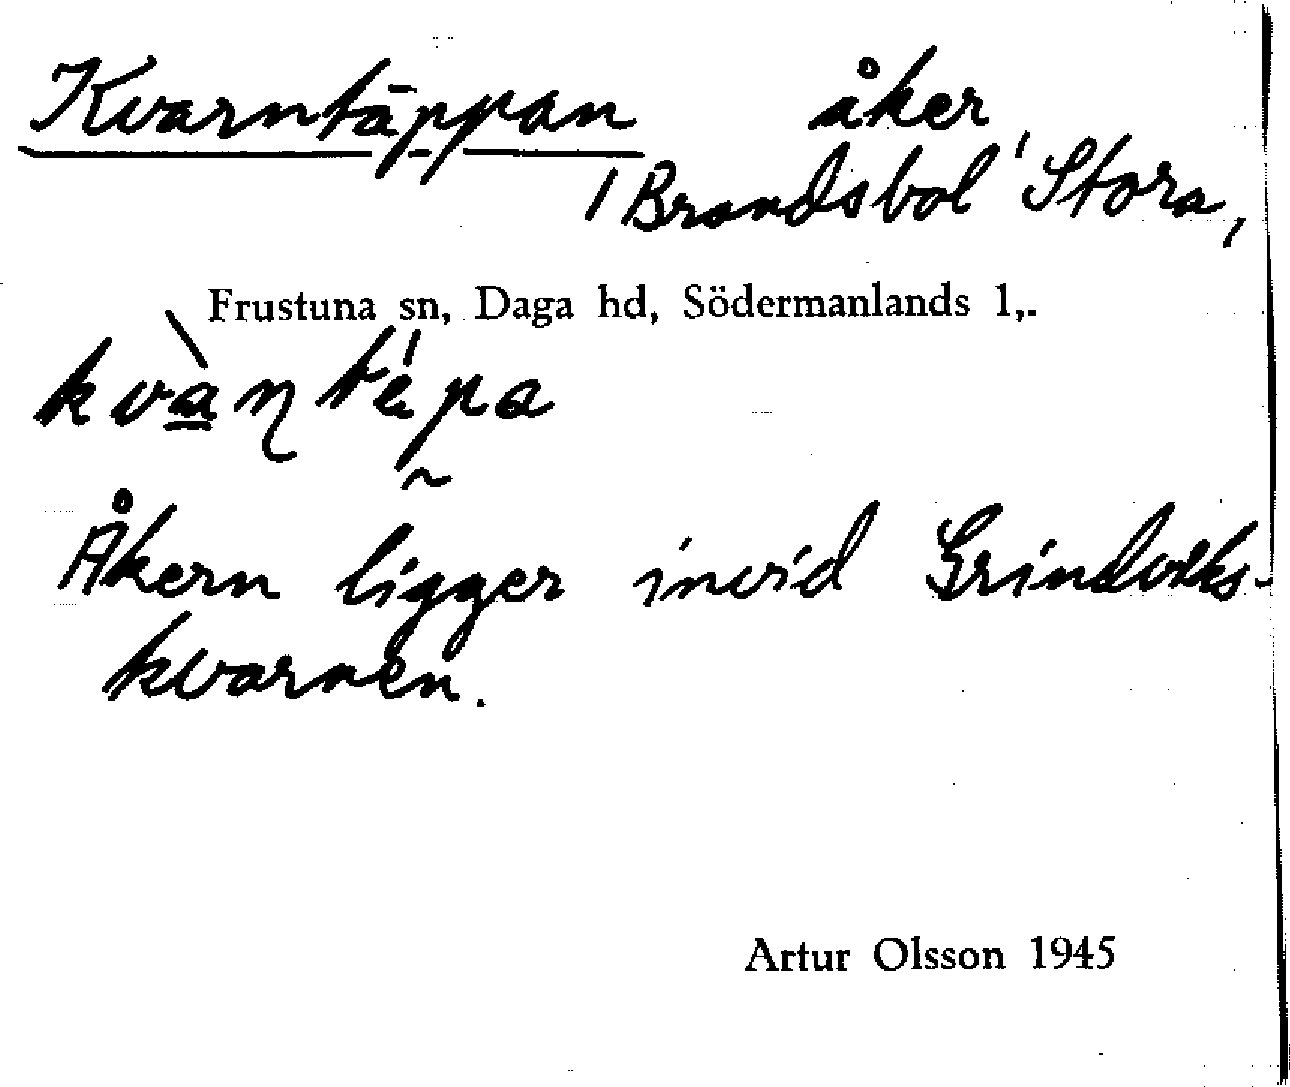 Kvarntäppan åker
/Brandsbol, Stora,
Frustuna sn, Daga hd, Södermanlands l,.
Åkern ligger invid
kvarnen.
Artur Olsson 1945